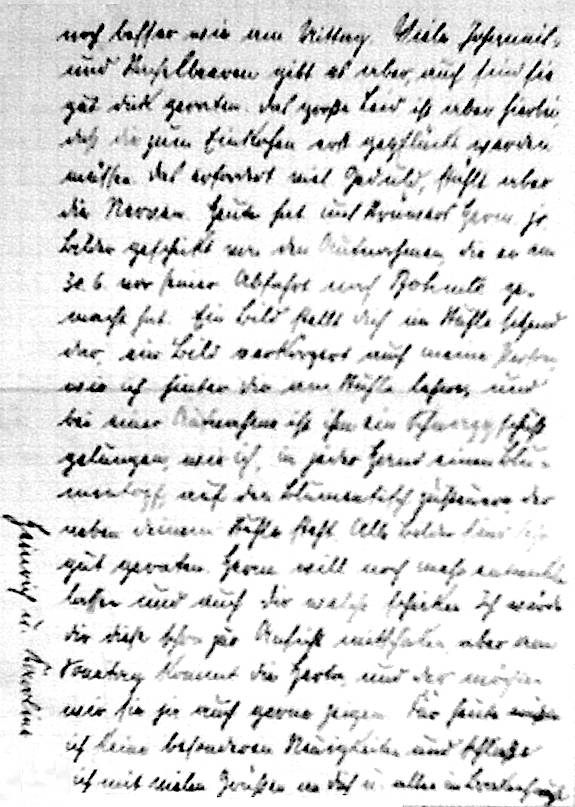 noch besser wie am Mittag. Viele Johannis-
und Stachelbeeren gibt es aber, auch sind sie
gut dick geraten. Das große Leid ist aber hierbei,
daß die zum Einkochen erst gepflückt werden
müssen. Das erfordert viel Geduld, stählt aber
die Nerven. Heute hat uns Krümers Herm. jr.
Bilder geschickt von den Aufnahmen, die er am
30.6. vor seiner Abfahrt nach Bohmte ge-
macht hat. Ein Bild stellt dich im Stuhle sitzend
dar, ein Bild verkörpert auch meine Person,
wie ich hinter dir am Stuhle lehne, und
bei einer Aufnahme ist ihm ein Schnappschuß
gelungen, wie ich, in jeder Hand einen Blu-
mentopf, auf den Blumentisch zusteuere, der
neben deinem Stuhle steht. Alle Bilder sind sehr
gut geraten. Herm will noch mehr entwickeln
lassen und auch dir welche schicken. Ich würde
dir diese schon zur Ansicht mitschicken, aber am
Sonntag kommt die Herta, und der möchten
wir sie ja auch gerne zeigen. Für heute
ich keine besonderen Neuigkeiten und schließe
ich mit vielen Grüßen an dich u. alle im
Heinrich u. Karoline